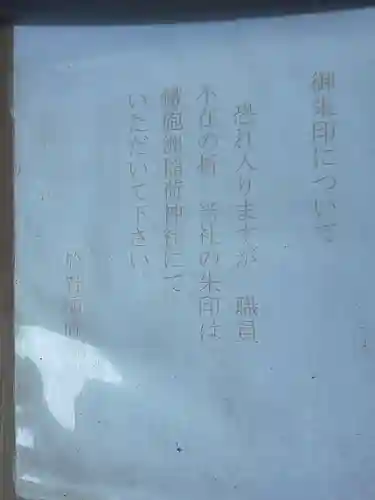 御朱印について
恐れ入りますが 職員
不在の折 当社の朱印は
鐵砲洲稲荷神社にて
いただいて下さい